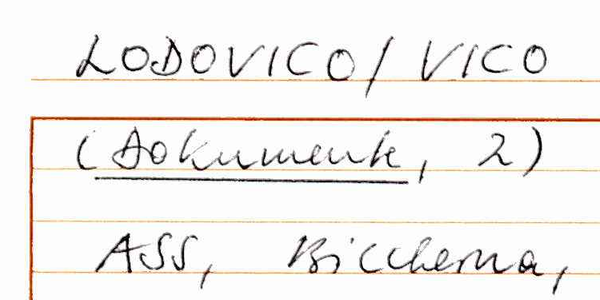 LODOVICO/ VICO
(Dokumente, 2)
ASS, Biccherna,